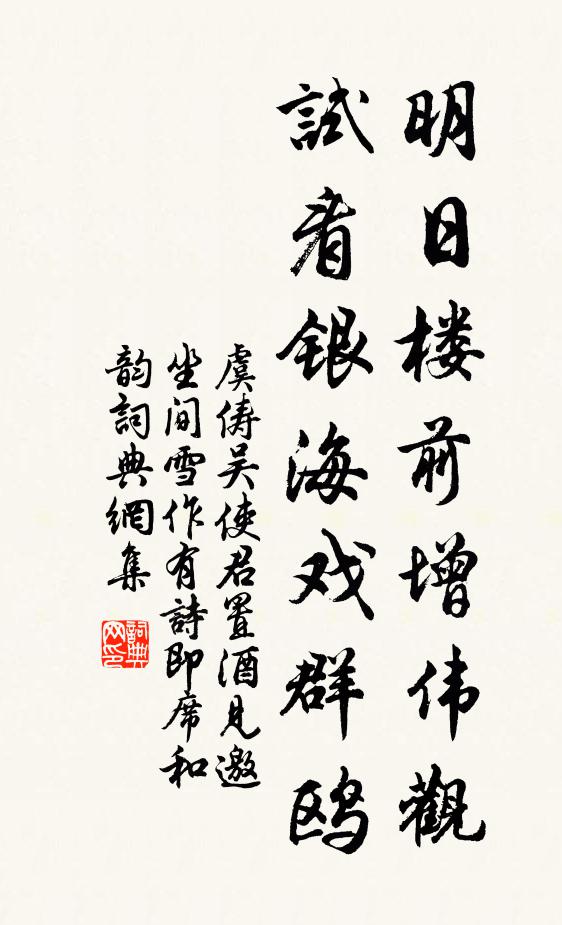 明日楼前增伟觀
試看银海戏群鸥
虞俦吴使君置酒見邀
坐间雪作有詩即席和
韵詞典網集
詞典
网印